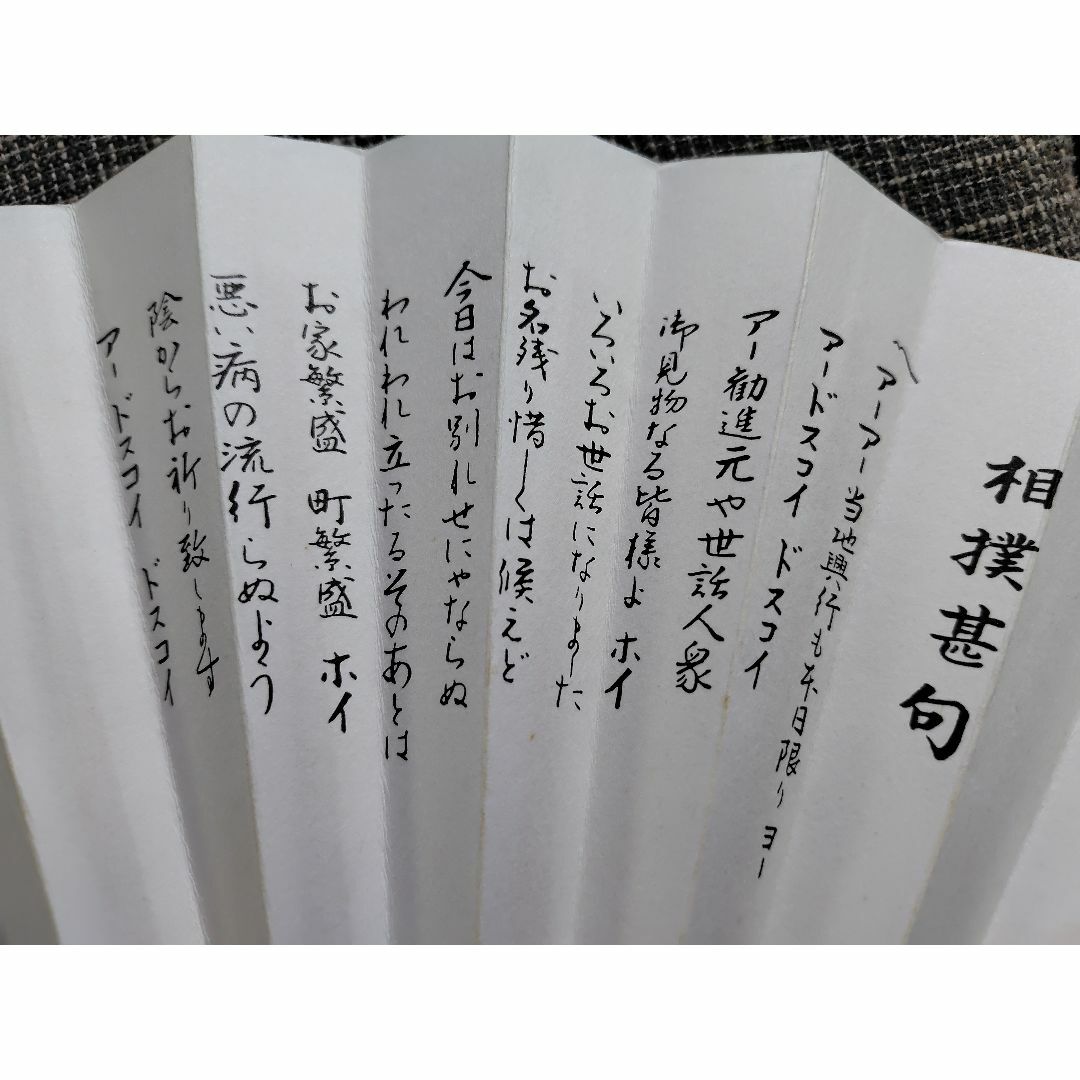 相撲甚句
〽アーアー当地興行も本日限りヨー
アードスコイ ドスコイ
アー勧進元や世話人衆
御見物なる皆様よ ホイ
いろいろお世話になりました
お名残り惜しくは候えど
今日はお別れせにゃならぬ
われわれ立ったるそのあとは
お家繁盛 町繁盛 ホイ
悪い病の流行らぬよう
陰からお祈り致します
アードスコイ ドスコイ